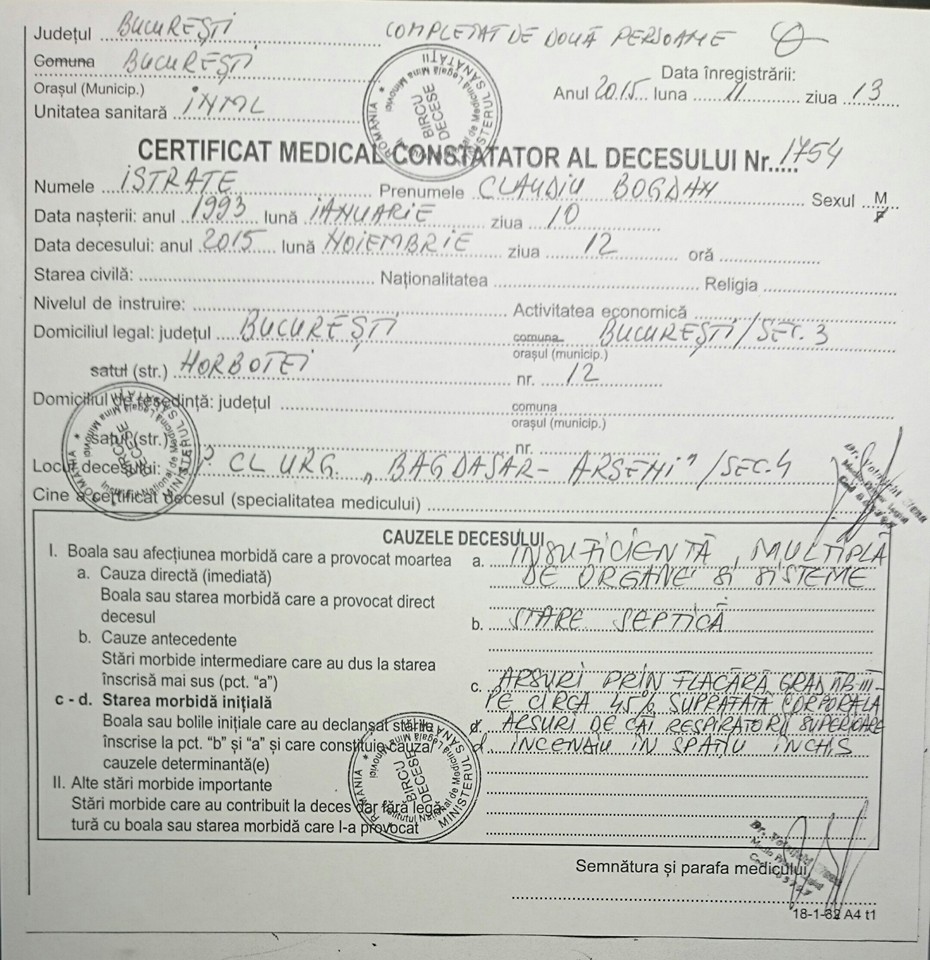 Județul BUCUREȘTI COMPLETAT DE DOUĂ PERSOANE
Comuna BUCUREȘTI
Orașul (Municip.)
Data înregistrării:
Unitatea sanitară INML Anul 2015 luna 11 ziua 13
CERTIFICAT MEDICAL CONSTATATOR AL DECESULUI Nr. 1754
Numele ISTRATE Prenumele CLAUDIU BOGDAN Sexul M
F
Data nașterii: anul 1993 lună IANUARIE ziua 10
Data decesului: anul 2015 lună NOIEMBRIE ziua 12 oră
Starea civilă: Naționalitatea Religia
Nivelul de instruire: Activitatea economică
Domiciliul legal: județul BUCUREȘTI comuna BUCUREȘTI/SEC.3
orașul (municip.)
satul (str.) HORBOTEI nr. 12
Domiciliul de reședință: județul comuna
orașul (municip.)
satul (str.) nr.
Locul decesului: CL URG. „BAGDASAR-ARSENI”/SEC.4
Cine a certificat decesul (specialitatea medicului)
CAUZELE DECESULUI
I. Boala sau afecțiunea morbidă care a provocat moartea a. INSUFICIENTĂ MULTIPLĂ
a. Cauza directă (imediată) DE ORGANE SI SISTEME
Boala sau starea morbidă care a provocat direct
decesul b. STARE SEPTICĂ
b. Cauze antecedente
Stări morbide intermediare care au dus la starea
înscrisă mai sus (pct. “a”) c. ARSURI PRIN FLACĂRĂ GRAD IIB-III
c - d. Starea morbidă inițială PE CIRCA 45% SUPRAFATA CORPORALA
Boala sau bolile inițiale care au declanșat stările d. ARSURI DE CĂI RESPIRATORII SUPERIOARE
înscrise la pct. “b” și “a” și care constituie cauza/ d. INCENDIU IN SPAȚIU INCHIS
cauzele determinantă(e)
II. Alte stări morbide importante
Stări morbide care au contribuit la deces dar fără legă-
tură cu boala sau starea morbidă care l-a provocat
Semnătura și parafa medicului
18-1-62 A4 t1
ROMÂNIA * MINISTERUL SĂNĂTĂȚII
Institutul Național de Medicină Legală Mina Minovici
BIROU
DECESE
ROMÂNIA * MINISTERUL SĂNĂTĂȚII
Institutul Național de Medicină Legală Mina Minovici
BIROU
DECESE
ROMÂNIA * MINISTERUL SĂNĂTĂȚII
Institutul Național de Medicină Legală Mina Minovici
BIROU
DECESE